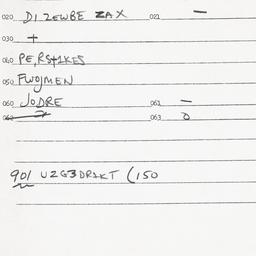 020 DIZEWBE ZAX 021 —
030 +
040 PE,RS41KES
050 FWOJMEN
060 JODRE 061 —
062 2 063 0
901 U2G3DRAKT (150